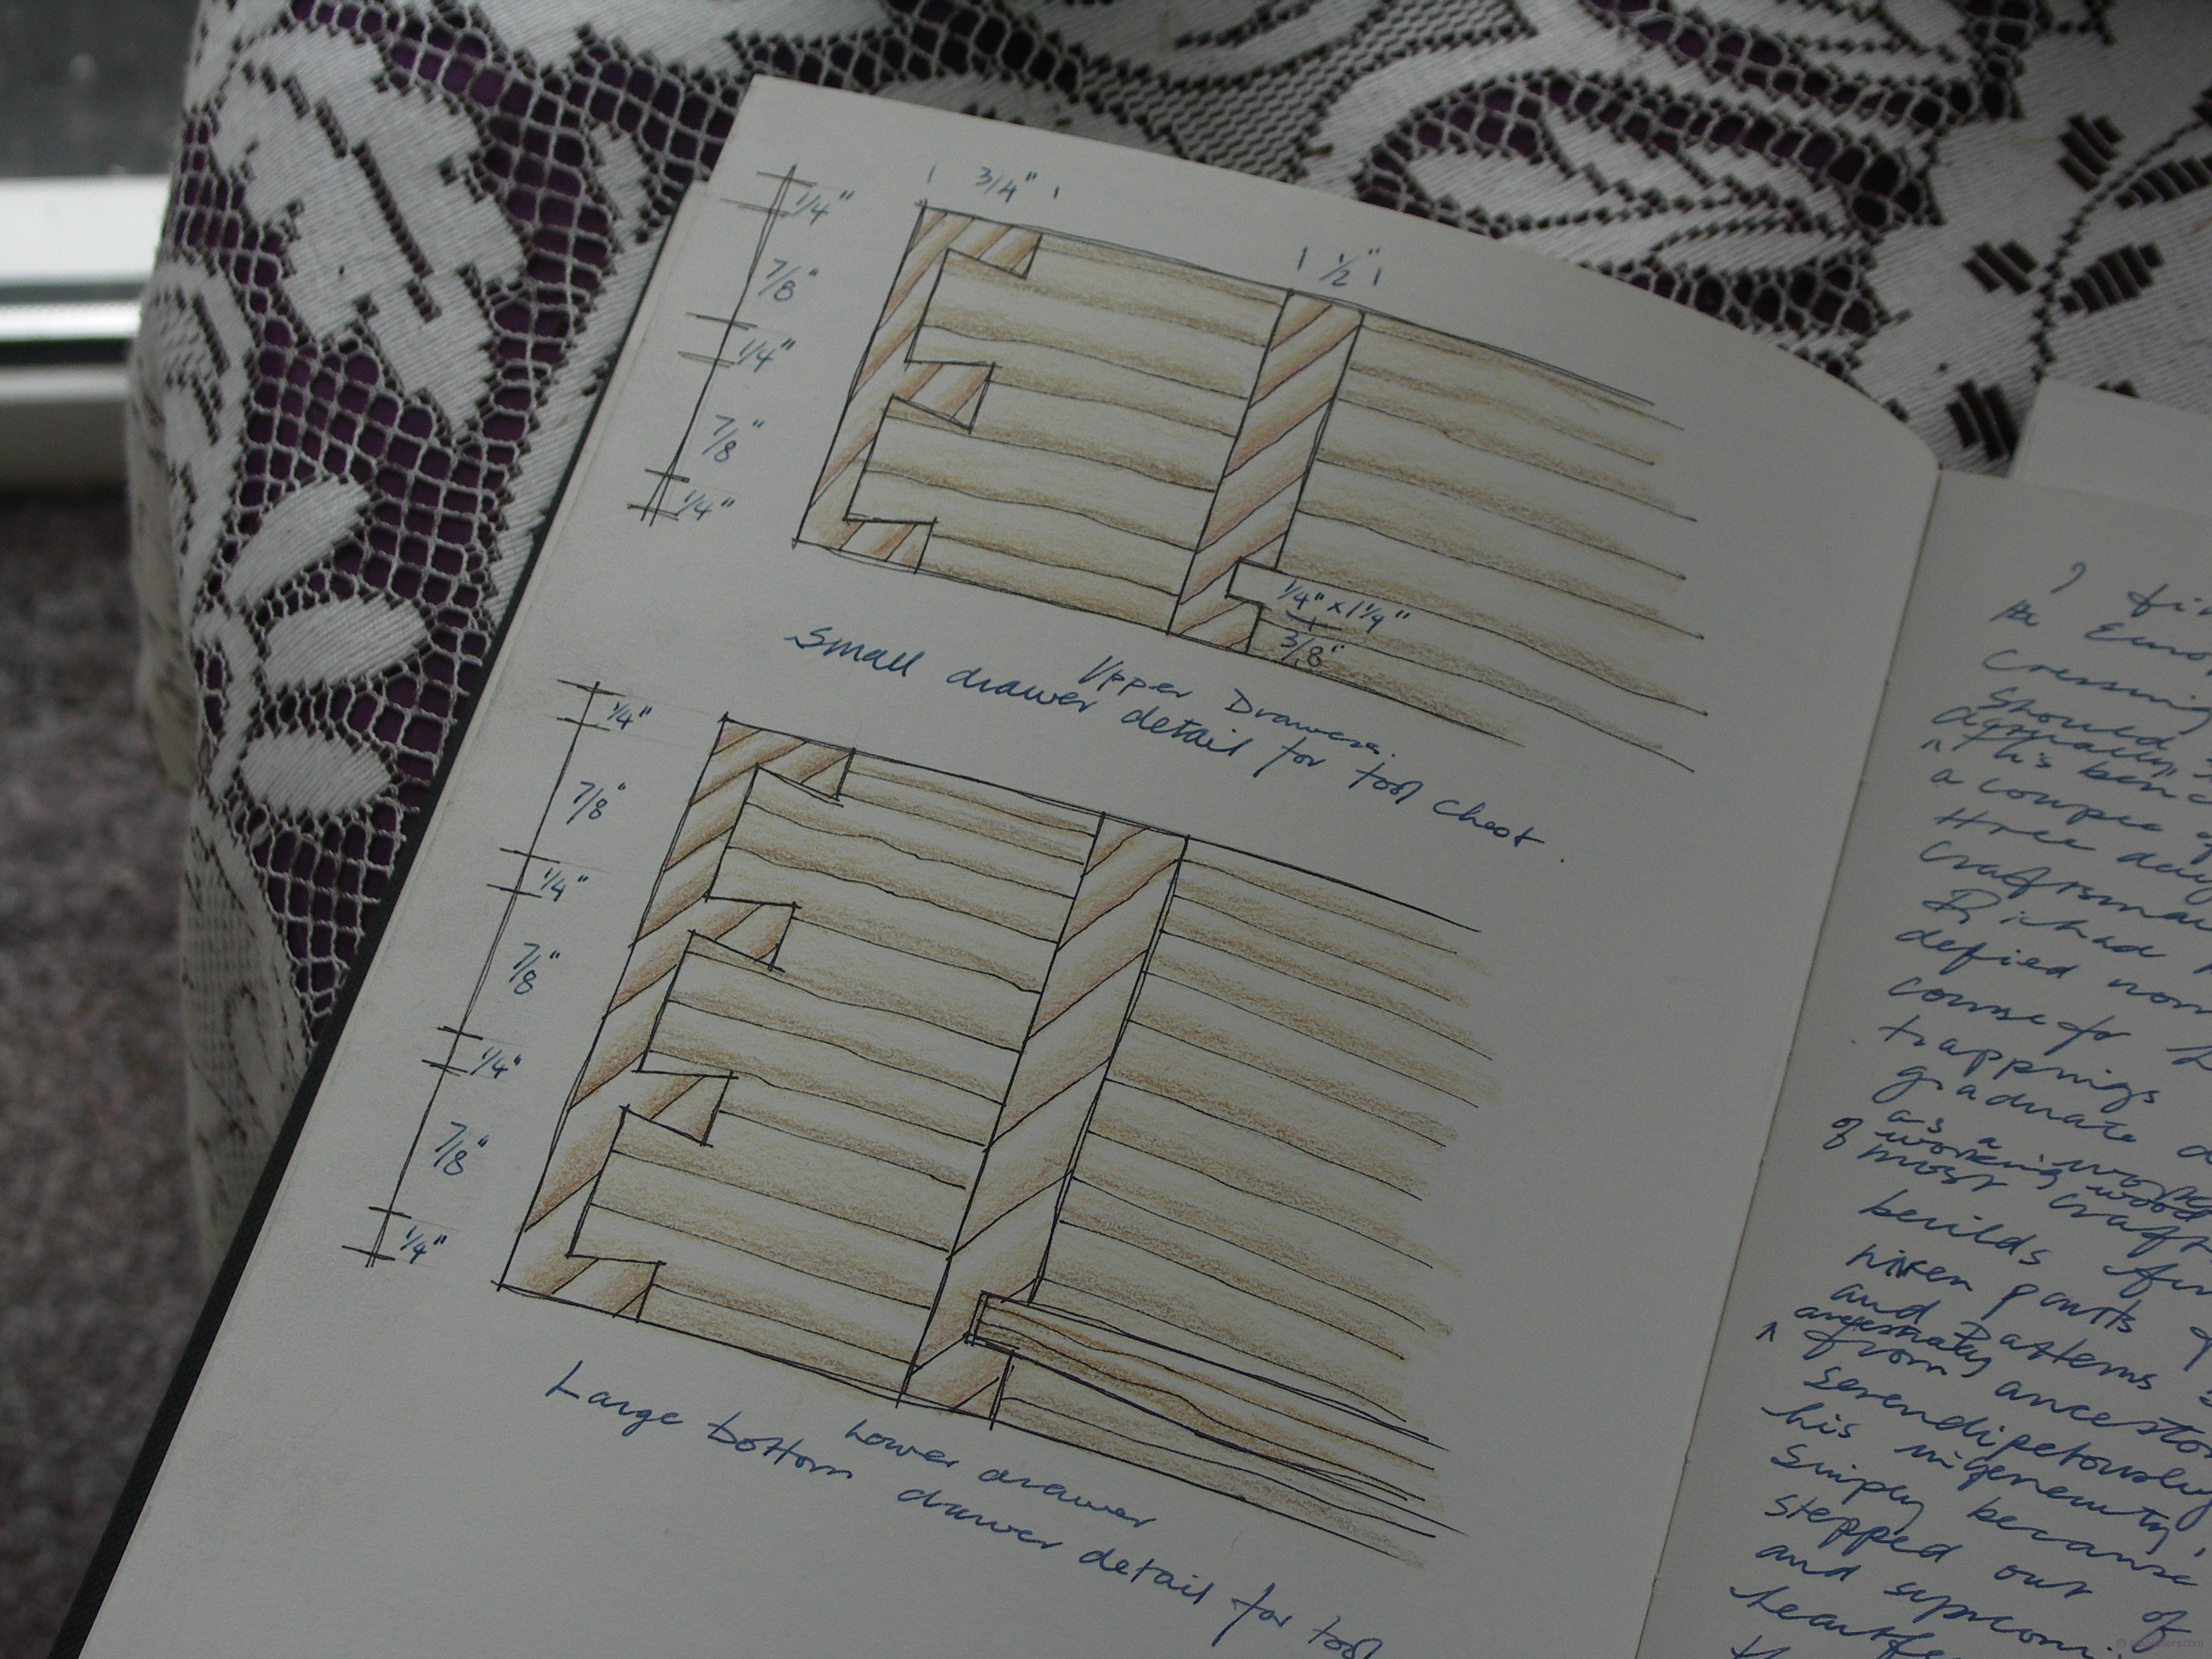 1/4"
3/4"
7/8"
1/2"
1/4"
7/8"
1/4"
1/4" x 1 1/4"
3/8"
Upper Drawers.
Small drawer detail for tool chest.
1/4"
7/8"
1/4"
7/8"
1/4"
7/8"
1/4"
Lower drawer
Large bottom drawer detail for tool
I
the
Cressing
should
this
a couple
three
craftsma
Richard
defied nor
course for
trappings
graduate
as a
of working wood
most craf
builds
riven parts
and patterns
from ancesto
serendipetously
his ingenenuity,
Simply because
stepped out of
and
heartfe